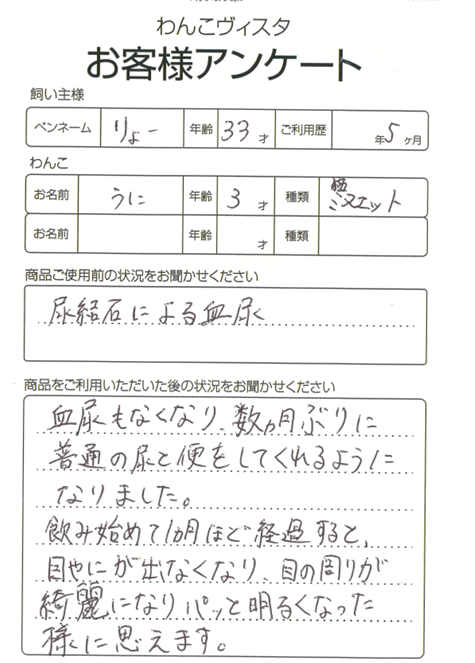 わんこヴィスタ
お客様アンケート
飼い主様
ペンネーム りょー 年齢 33 才 ご利用歴 年 5 ヶ月
わんこ
お名前 うに 年齢 3 才 種類 ミヌエット
お名前 年齢 才 種類
商品ご使用前の状況をお聞かせください
尿結石による血尿
商品をご利用いただいた後の状況をお聞かせください
血尿もなくなり、数ヵ月ぶりに
普通の尿と便をしてくれるように
なりました。
飲み始めて1ヵ月ほど経過すると、
目やにが出なくなり、目の周りが
綺麗になりパッと明るくなった
様に思えます。